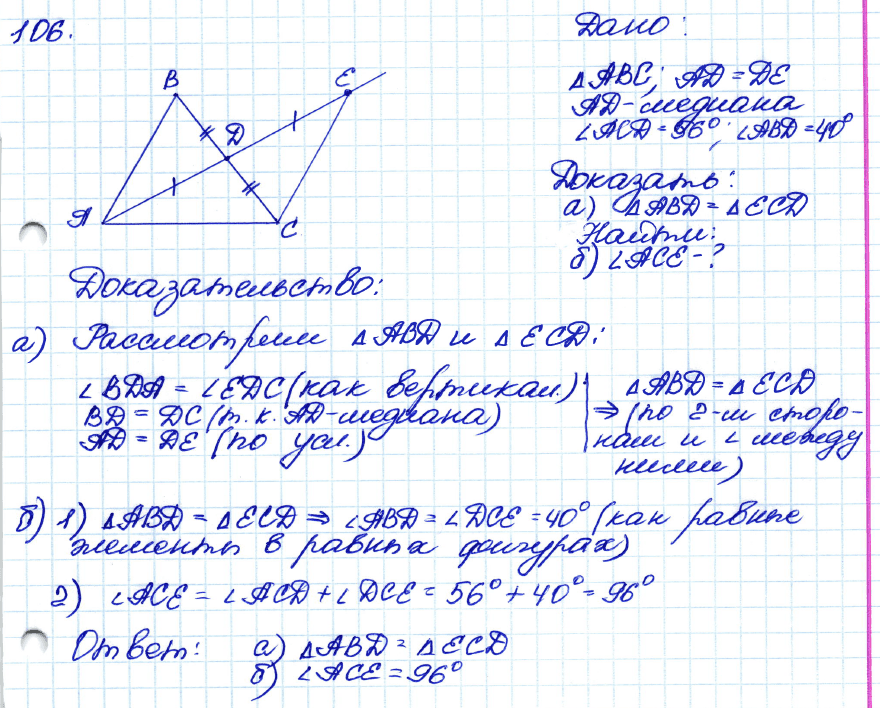 106.
Дано:
△ABC; AD = DE
AD - медиана
∠ACD = 56°; ∠ABD = 40°
Доказать:
а) △ABD = △ECD
Найти:
б) ∠ACE - ?
B
E
D
A
C
Доказательство:
а) Рассмотрим △ABD и △ECD:
∠BDA = ∠EDC (как вертикал.)
BD = DC (т. к. AD - медиана)
AD = DE (по усл.)
△ABD = △ECD
⇒ (по 2-м сторо-
нам и ∠ между
ними)
б) 1) △ABD = △ECD ⇒ ∠ABD = ∠DCE = 40° (как равные
элементы в равных фигурах)
2) ∠ACE = ∠ACD + ∠DCE = 56° + 40° = 96°
Ответ: а) △ABD = △ECD
б) ∠ACE = 96°